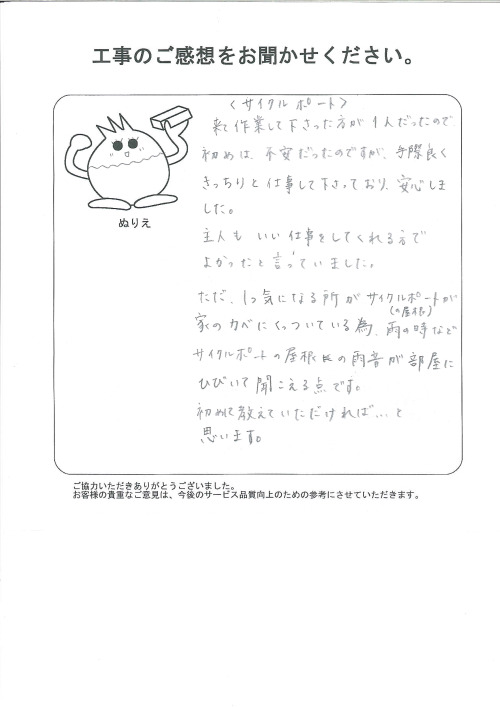 工事のご感想をお聞かせください。
<サイクルポート>
来て作業して下さった方が1人だったので
初めは、不安だったのですが、手際良く
きっちりと仕事して下さっており、安心しま
した。
主人もいい仕事をしてくれる方で
よかったと言っていました。
ぬりえ
ただ、1つ気になる所がサイクルポートが
(の屋根)
家のカベにくっついている為、雨の時など
サイクルポートの屋根の雨音が部屋に
ひびいて聞こえる点です。
初めに教えていただければ…と
思います。
ご協力いただきありがとうございました。
お客様の貴重なご意見は、今後のサービス品質向上のための参考にさせていただきます。